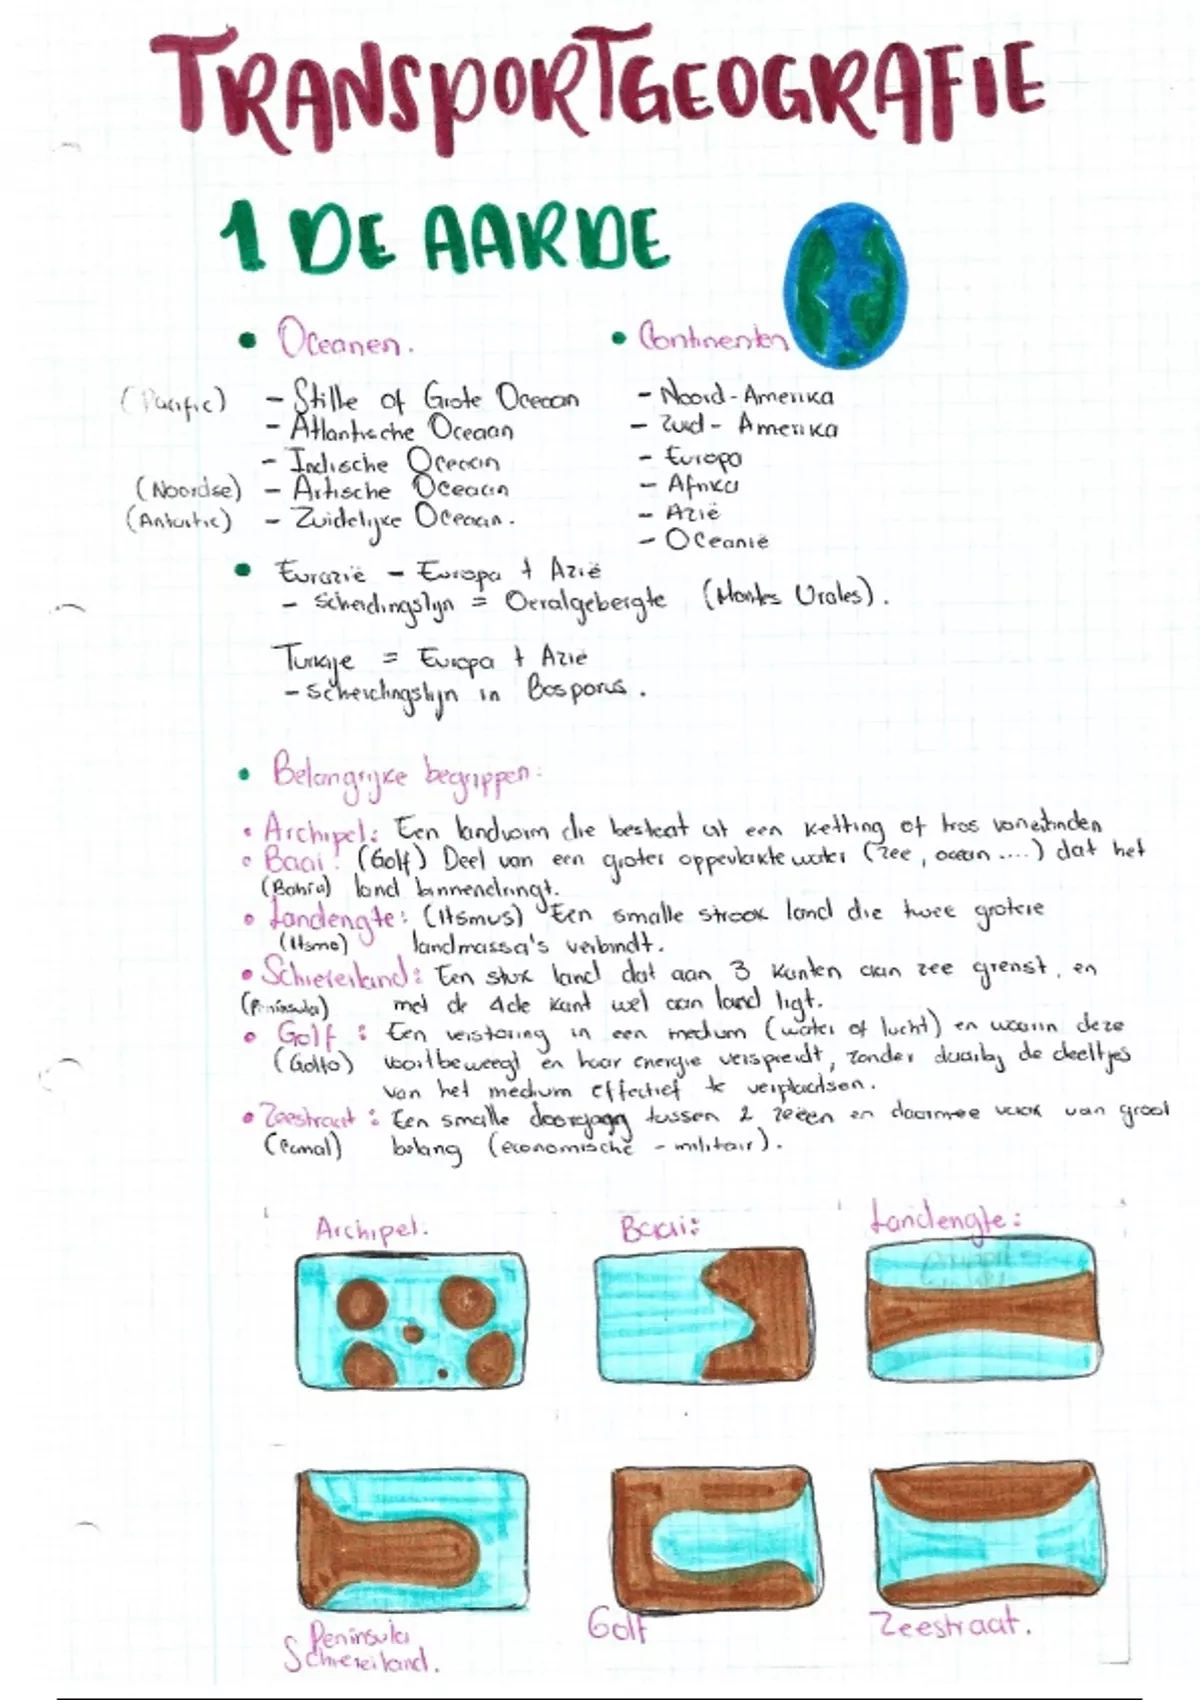 TRANSPORTGEOGRAFIE
1 DE AARDE
• Oceanen.
(Pacific) - Stille of Grote Oceaan
- Atlantische Oceaan
- Indische Oceaan
(Noordse) - Artische Oceaan
(Antartic) - Zuidelijke Oceaan.
• Continenten
- Noord-Amerika
- Zuid-Amerika
- Europa
- Afrika
- Azië
- Oceanië
• Eurazië - Europa + Azië
- scheidingslijn = Oeralgebergte (Montes Urales).
Turkije = Europa + Azië
- scheidingslijn in Bosporus.
• Belangrijke begrippen:
• Archipel: Een landvorm die bestaat uit een ketting of tros van eilanden
• Baai: (Golf) Deel van een groter oppervlakte water (zee, oceaan ....) dat het
(Bahía) land binnendringt.
• Landengte: (Itsmus) Een smalle strook land die twee grotere
(Itsmo) landmassa's verbindt.
• Schiereiland: Een stuk land dat aan 3 kanten aan zee grenst, en
(Península) met de 4de kant wel aan land ligt.
• Golf: Een verstoring in een medium (water of lucht) en waarin deze
(Golfo) voortbeweegt en haar energie verspreidt, zonder daarbij de deeltjes
van het medium effectief te verplaatsen.
• Zeestraat: Een smalle doorgang tussen 2 zeeën en daarmee vaak van groot
(Canal) belang (economische - militair).
Archipel:
Baai:
Landengte:
Peninsula
Schiereiland.
Golf
Zeestraat.